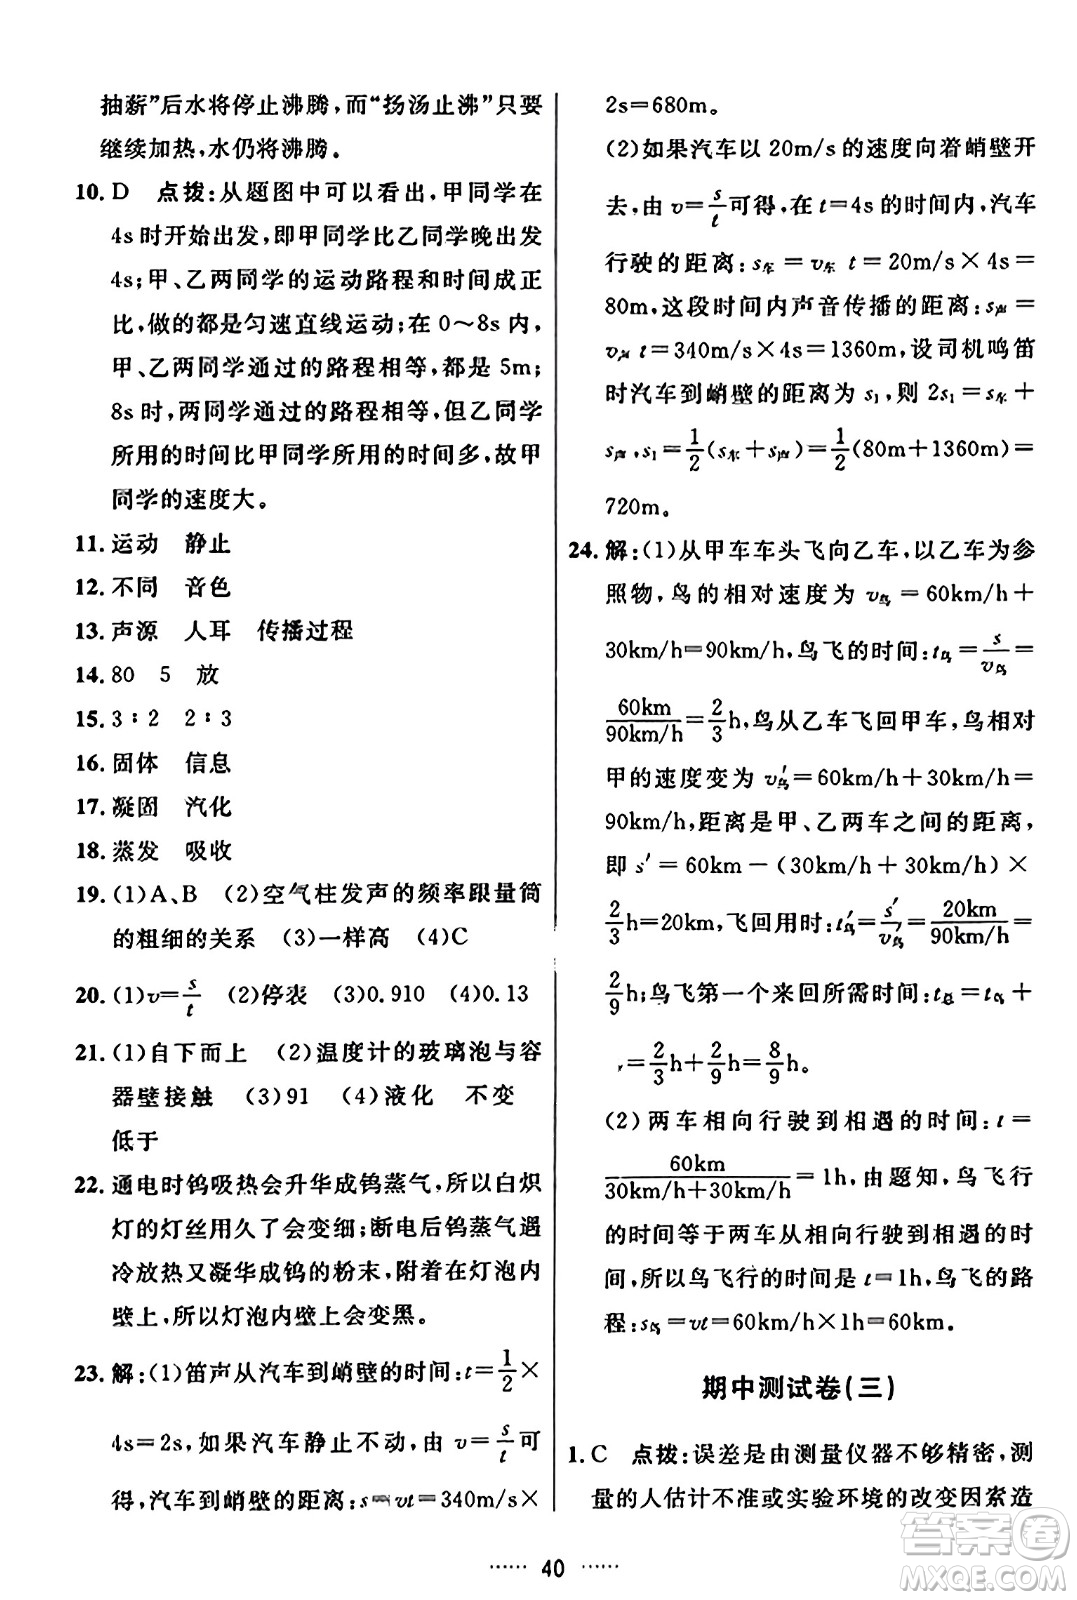 抽薪”后水将停止沸腾，而“扬汤止沸”只要
继续加热，水仍将沸腾。
10. D　点拨：从题图中可以看出，甲同学在
4s时开始出发，即甲同学比乙同学晚出发
4s；甲、乙两同学的运动路程和时间成正
比，做的都是匀速直线运动；在 0～8s 内，
甲、乙两同学通过的路程相等，都是 5m；
8s 时，两同学通过的路程相等，但乙同学
所用的时间比甲同学所用的时间多，故甲
同学的速度大。
11. 运动　静止
12. 不同　音色
13. 声源　人耳　传播过程
14. 80　5　放
15. 3∶2　2∶3
16. 固体　信息
17. 凝固　汽化
18. 蒸发　吸收
19. (1)A、B　(2)空气柱发声的频率跟量筒
的粗细的关系　(3)一样高　(4)C
20. (1)v=s/t　(2)停表　(3)0.910　(4)0.13
21. (1)自下而上　(2)温度计的玻璃泡与容
器壁接触　(3)91　(4)液化　不变
低于
22. 通电时钨吸热会升华成钨蒸气，使白炽
灯的灯丝用久了会变细；断电后钨蒸气遇
冷放热又凝华成钨的粉末，附着在灯泡内
壁上，所以灯泡内壁上会变黑。
23. 解：(1)笛声从汽车到峭壁的时间：t=1/2×
4s=2s，如果汽车静止不动，由 v=s/t可
得，汽车到峭壁的距离：s=vt=340m/s×
2s=680m。
(2)如果汽车以 20m/s 的速度向着峭壁开
去，由 v=s/t可得，在 t=4s的时间内，汽车
行驶的距离：s车=v车 t=20m/s×4s=
80m，这段时间内声音传播的距离：s声=
v声 t=340m/s×4s=1360m，设司机鸣笛
时汽车到峭壁的距离为 s₁，则 2s₁=s车+
s声，s₁=1/2(s车+s声)=1/2(80m+1360m)=
720m。
24. 解：(1)从甲车车头飞向乙车，以乙车为参
照物，鸟的相对速度为 v鸟=60km/h+
30km/h=90km/h，鸟飞的时间：t鸟=s/v鸟=
60km/90km/h=2/3h，鸟从乙车飞回甲车，鸟相对
甲的速度变为 v′鸟=60km/h+30km/h=
90km/h，距离是甲、乙两车之间的距离，
即 s′=60km－(30km/h+30km/h)×
2/3h=20km，飞回用时：t′鸟=s′/v′鸟=20km/90km/h=
2/9h；鸟飞第一个来回所需时间：t总=t鸟+
=2/3h+2/9h=8/9h。
(2)两车相向行驶到相遇的时间：t=
60km/30km/h+30km/h=1h，由题知，鸟飞行
的时间等于两车从相向行驶到相遇的时
间，所以鸟飞行的时间是 t=1h，鸟飞的路
程：s鸟=vt=60km/h×1h=60km。
期中测试卷(三)
1. C　点拨：误差是由测量仪器不够精密，测
量的人估计不准或实验环境的改变因素造
······ 40 ······
答案卷
MXQE.COM